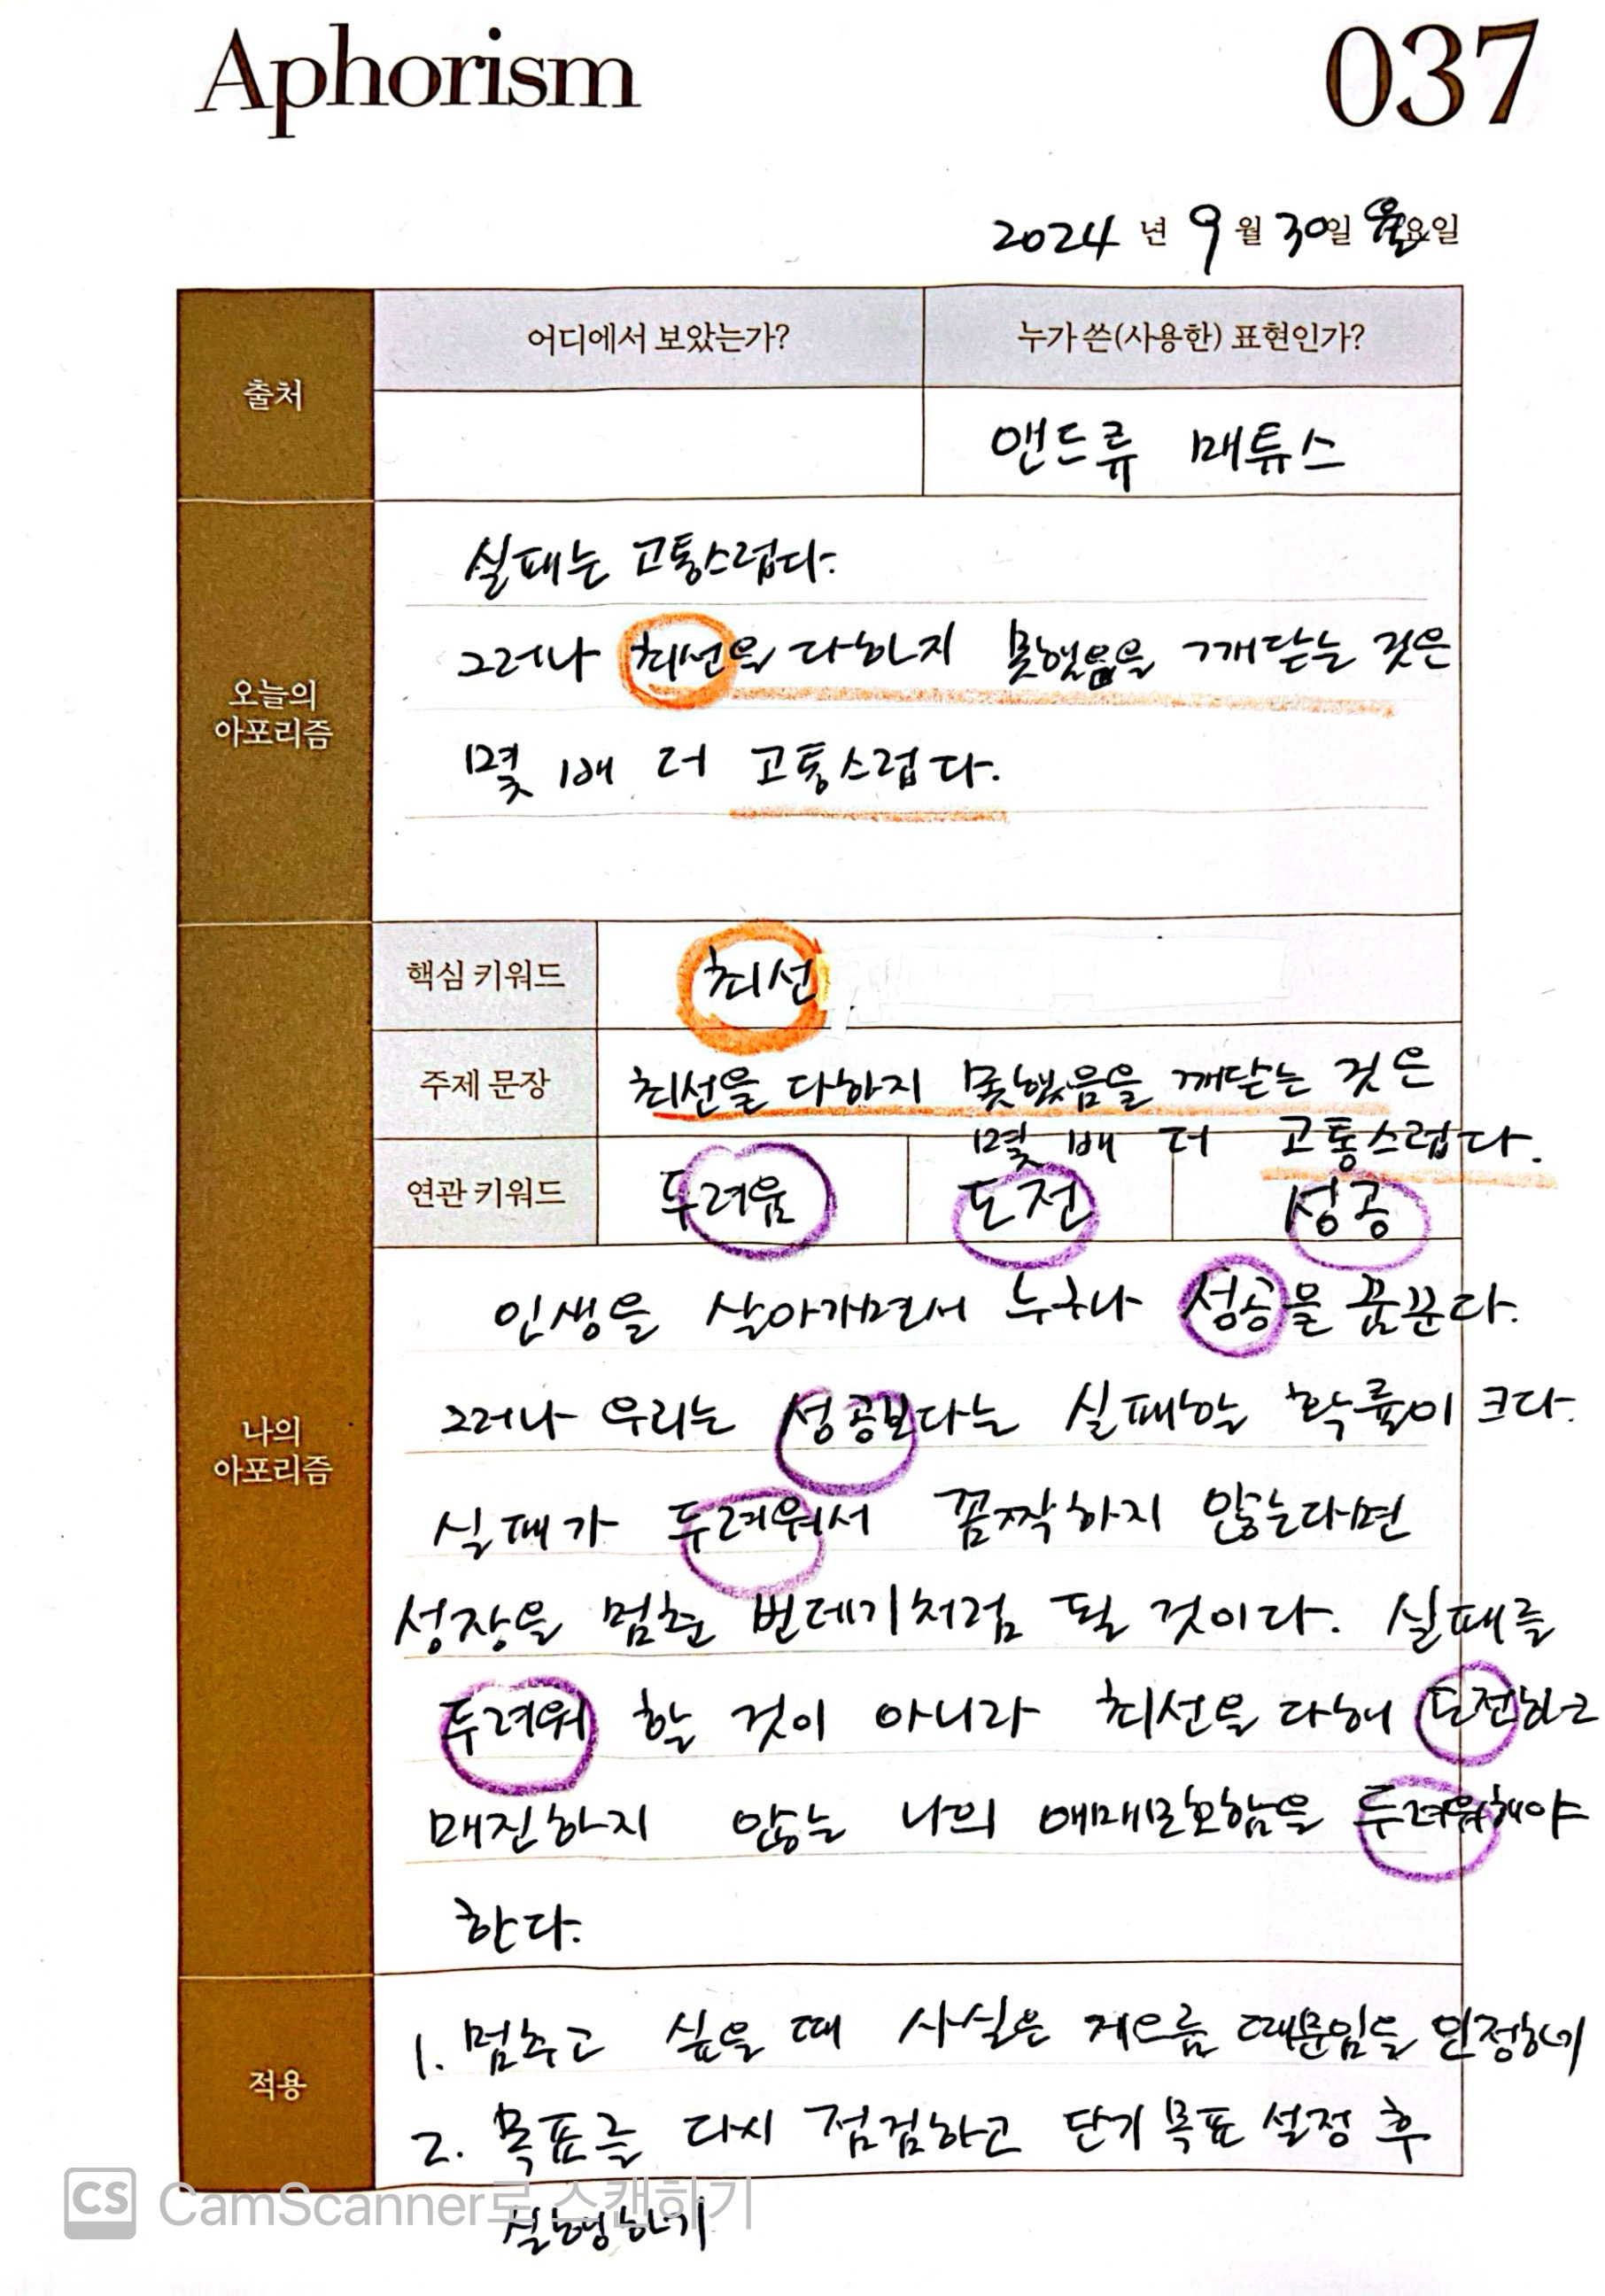 Aphorism 037
2024 년 9 월 30일 월요일
어디에서 보았는가? 누가 쓴(사용한) 표현인가?
출처
앤드류 매튜스
실패는 고통스럽다.
그러나 최선을 다하지 못했음을 깨닫는 것은
몇 배 더 고통스럽다.
오늘의
아포리즘
핵심 키워드 최선
주제 문장 최선을 다하지 못했음을 깨닫는 것은
몇 배 더 고통스럽다.
연관 키워드 두려움 도전 성공
인생을 살아가면서 누구나 성공을 꿈꾼다.
그러나 우리는 성공보다는 실패할 확률이 크다.
나의
아포리즘
실패가 두려워서 꼼짝하지 않는다면
성장을 멈춘 번데기처럼 될 것이다. 실패를
두려워 할 것이 아니라 최선을 다해 도전하고
매진하지 않는 나의 애매모호함을 두려워해야
한다.
적용
1. 멈추고 싶을 때 사실은 게으름 때문임을 인정하기
2. 목표를 다시 점검하고 단기 목표 설정 후
실행하기
CS CamScanner로 스캔하기